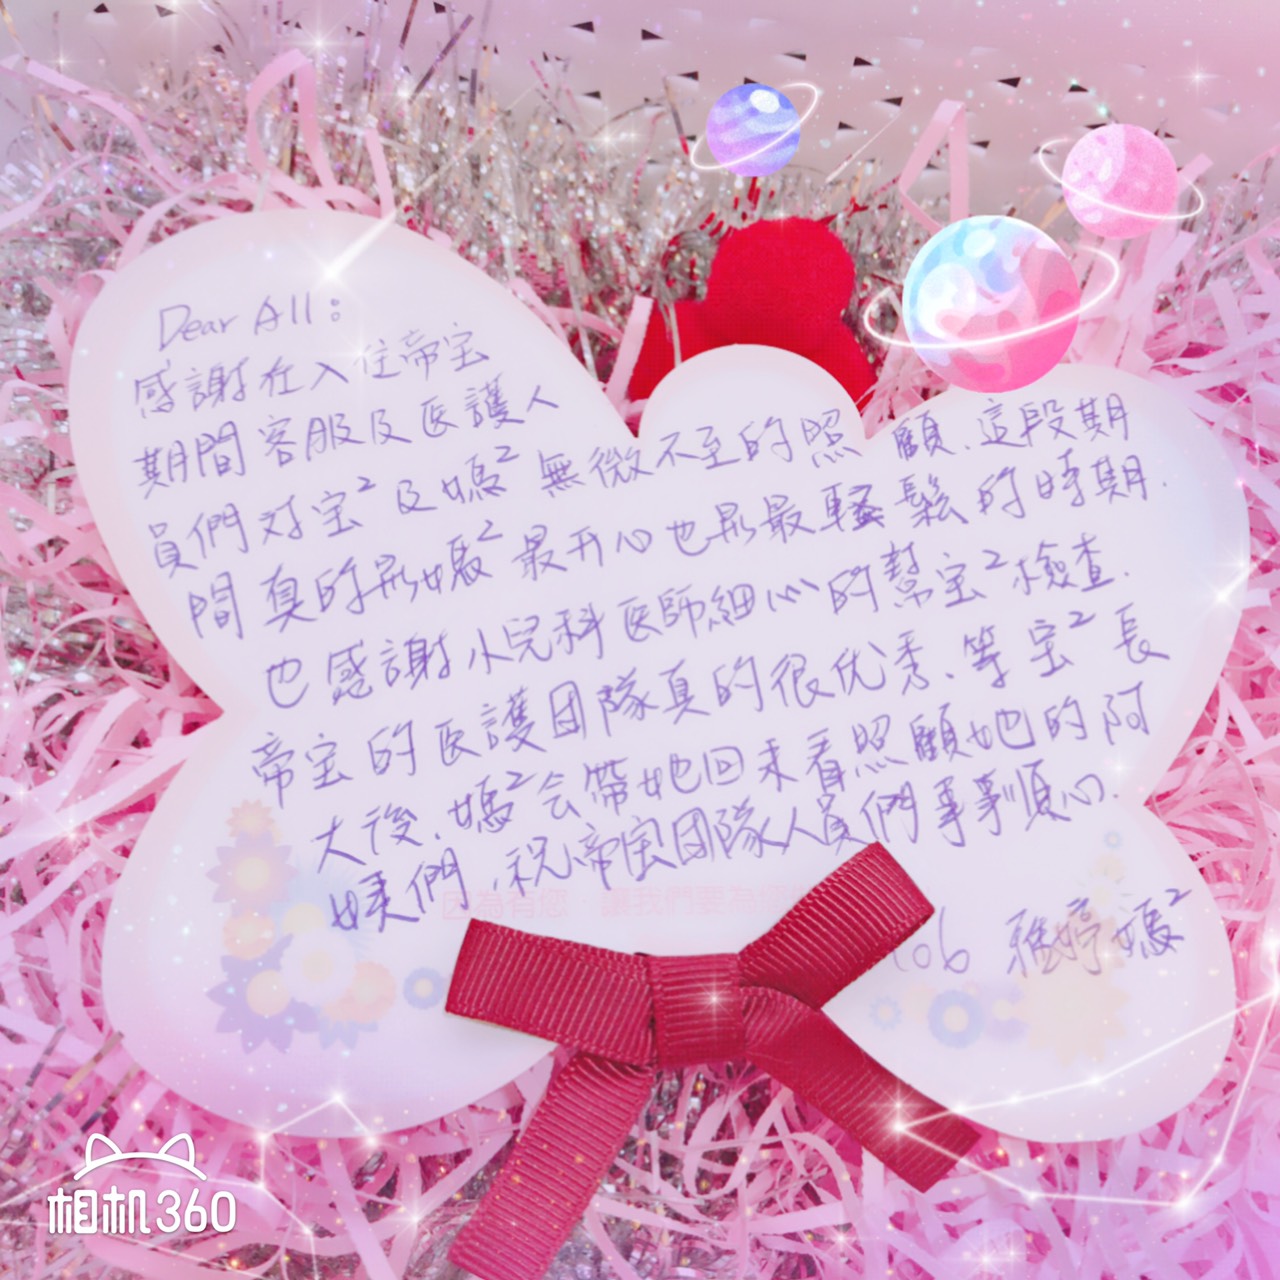 Dear All:
感謝在入住帝宝
期間客服及医護人
員們对宝²及媽²無微不至的照顧.這段期
間真的是媽²最开心也是最輕鬆的時期.
也感謝小兒科医師細心的幫宝²檢查.
帝宝的医護团隊真的很优秀、等宝²長
大後.媽²会帶她回來看照顧她的阿
姨們,祝帝宝团隊人員們事事順心.
因為有您,讓我們要為
106 雅婷媽²
相机360